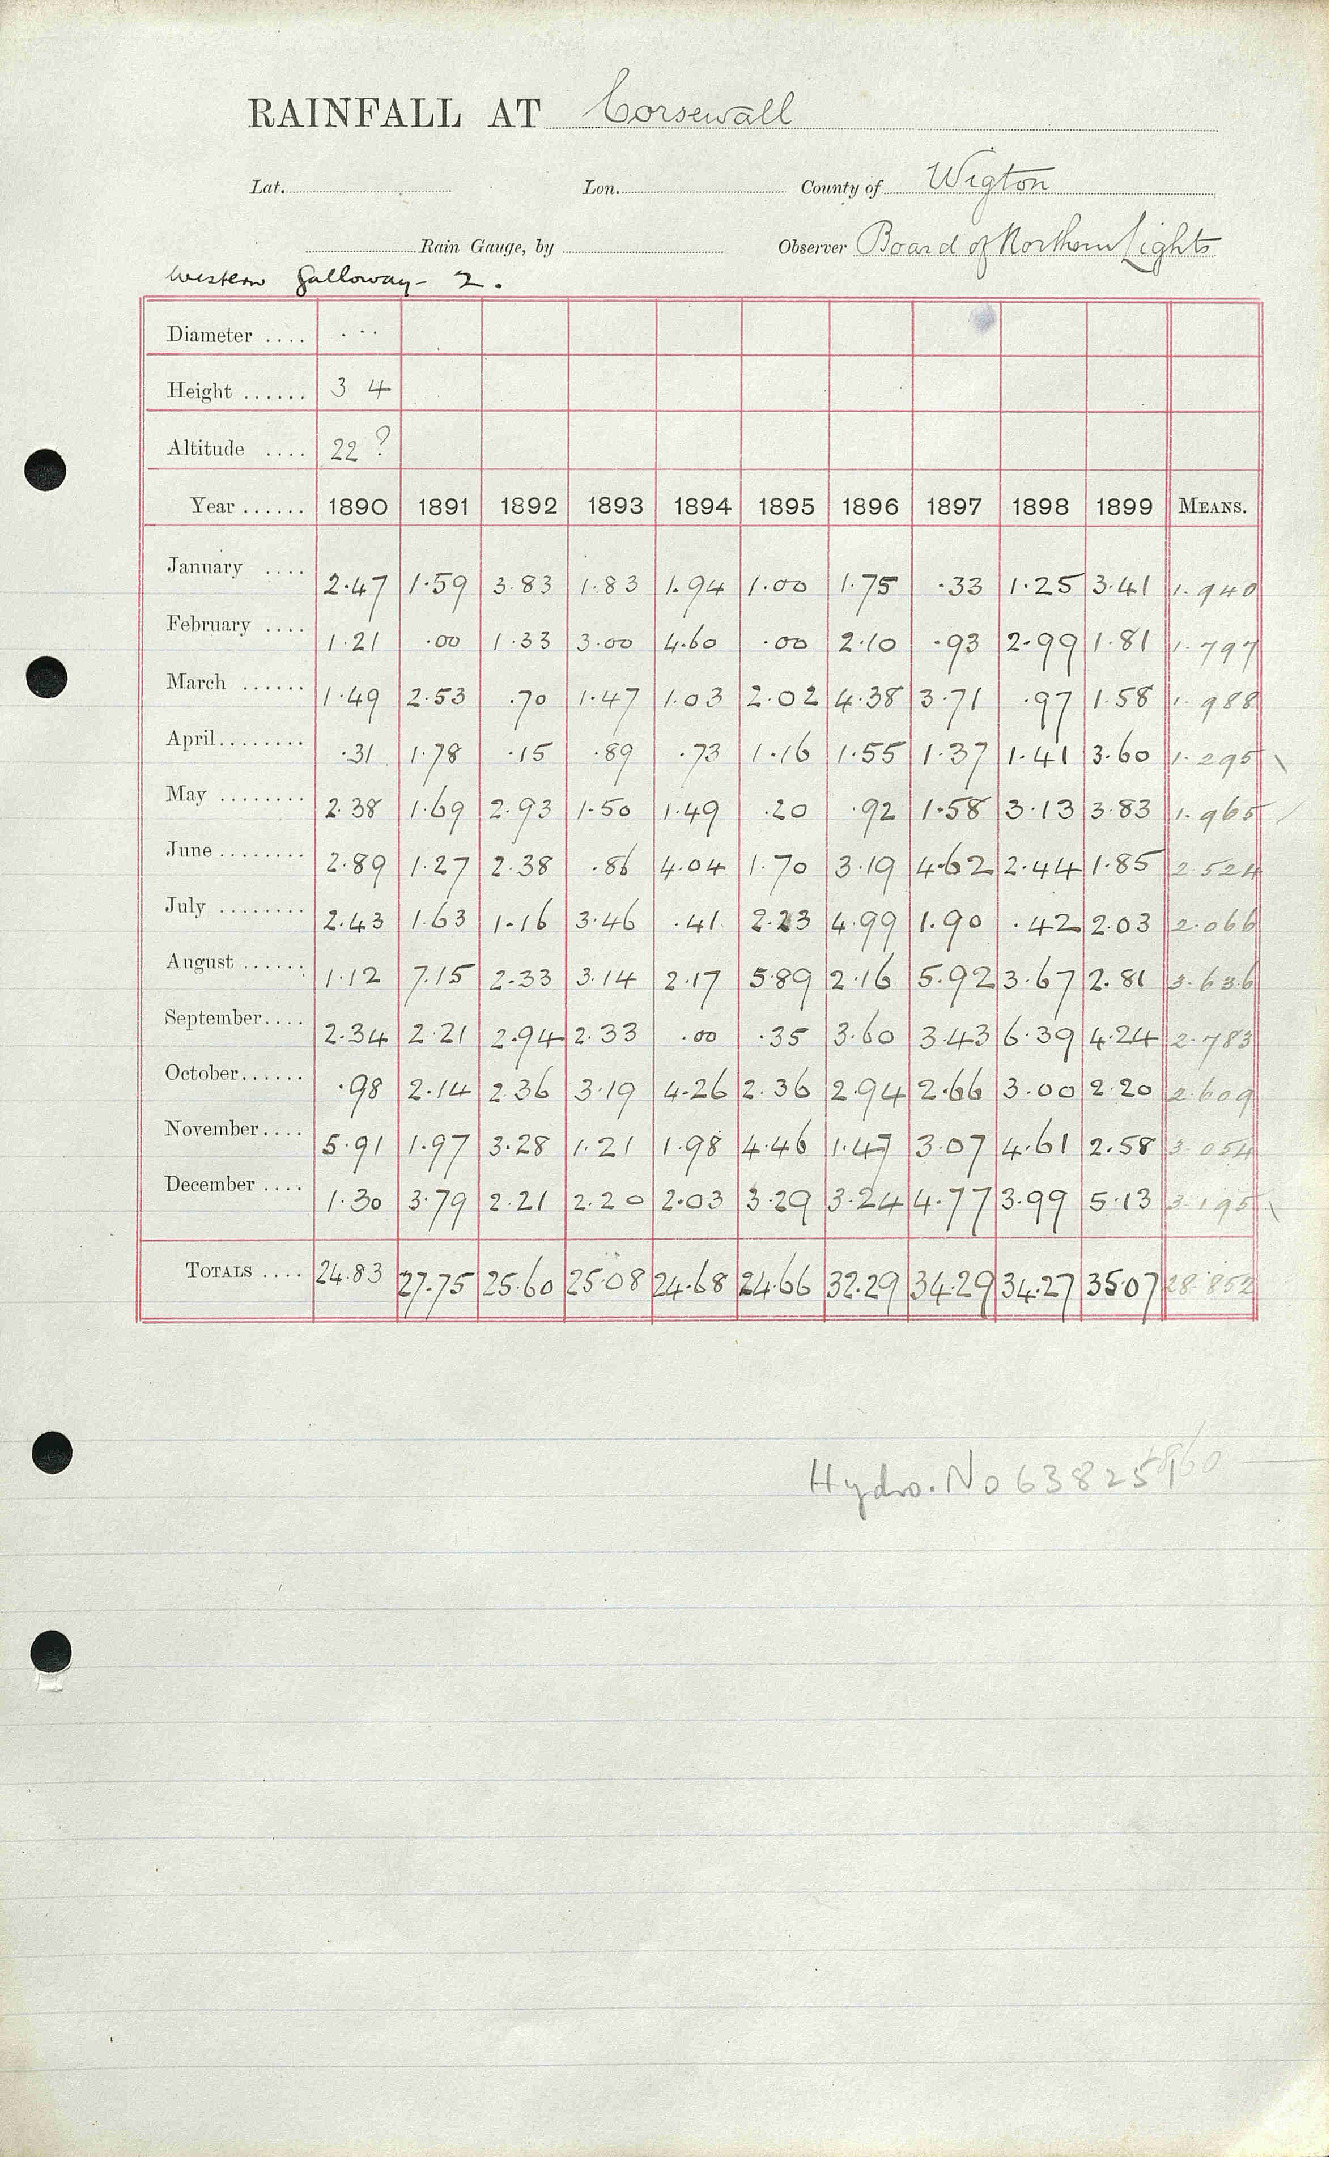 RAINFALL AT Corsewall
Lat. Lon. County of Wigton
Rain Gauge, by Observer Board of Northern Lights
Western Galloway - 2.
Diameter .... . . .
Height ...... 3 4
Altitude .... 22 ?
Year ...... 1890 1891 1892 1893 1894 1895 1896 1897 1898 1899 MEANS.
January .... 2.47 1.59 3.83 1.83 1.94 1.00 1.75 .33 1.25 3.41 1.940
February .... 1.21 .00 1.33 3.00 4.60 .00 2.10 .93 2.99 1.81 1.797
March ...... 1.49 2.53 .70 1.47 1.03 2.02 4.38 3.71 .97 1.58 1.988
April........ .31 1.78 .15 .89 .73 1.16 1.55 1.37 1.41 3.60 1.295
May ........ 2.38 1.69 2.93 1.50 1.49 .20 .92 1.58 3.13 3.83 1.965
June ........ 2.89 1.27 2.38 .86 4.04 1.70 3.19 4.62 2.44 1.85 2.524
July ........ 2.43 1.63 1.16 3.46 .41 2.23 4.99 1.90 .42 2.03 2.066
August ...... 1.12 7.15 2.33 3.14 2.17 5.89 2.16 5.92 3.67 2.81 3.636
September.... 2.34 2.21 2.94 2.33 .00 .35 3.60 3.43 6.39 4.24 2.783
October...... .98 2.14 2.36 3.19 4.26 2.36 2.94 2.66 3.00 2.20 2.609
November.... 5.91 1.97 3.28 1.21 1.98 4.46 1.47 3.07 4.61 2.58 3.054
December .... 1.30 3.79 2.21 2.20 2.03 3.29 3.24 4.77 3.99 5.13 3.195
TOTALS .... 24.83 27.75 25.60 25.08 24.68 24.66 32.29 34.29 34.27 35.07 28.852
Hydro. No 638251